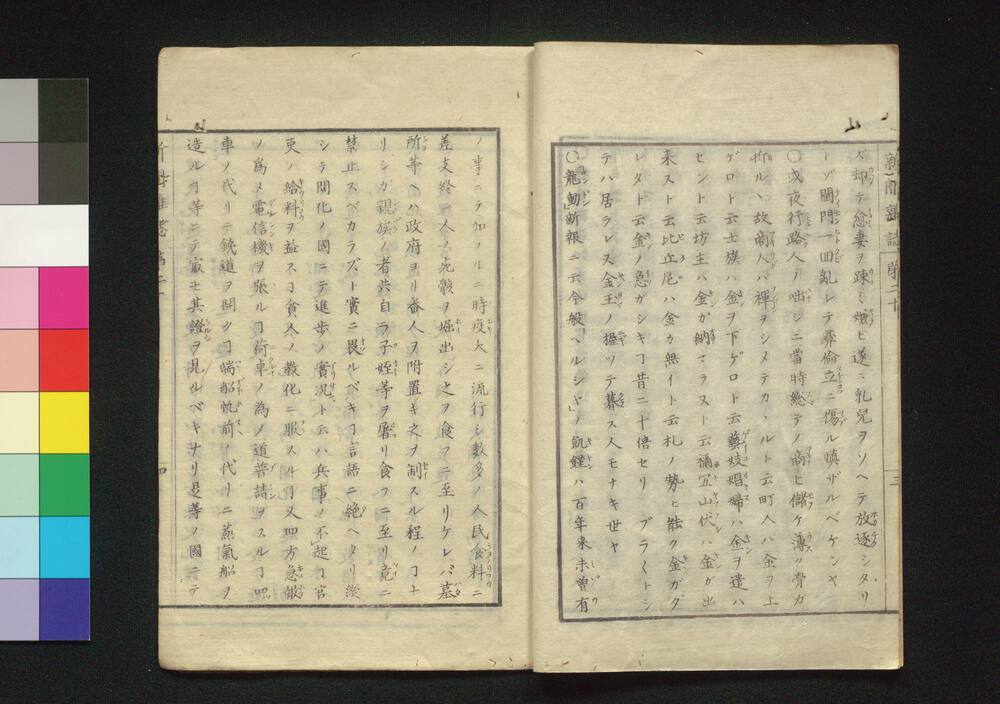 新聞雑誌 第二十 三
ズ却テ愈妻ヲ疎ミ娘ビ遂ニ乳兒ヲソヘテ放逐シタリ
トゾ閨門一回亂レテ彝倫立ニ傷ル慎ザルベケンヤ
〇或夜行路人ノ咄シニ當時總テノ商ヒ儲ケ薄ク骨ガ
折ル丶故商人ハ褌ヲシメテカヽルト云町人ハ金ヲ上
ゲロト云士族ハ金ヲ下ゲロト云藝妓娼婦ハ金ヲ遣ハ
セント云坊主ハ金ガ納マラヌト云禰冝山伏ハ金ガ出
来スト云比丘尼ハ金ガ無イト云札ノ勢ヒ能ク金ガダ
レタト云金ノ急ガシキヿ昔ニ十倍セリ ブラ〱トシ
テハ居ラレヌ金玉ノ握ツテ暮ス人モナキ世ヤ
〇龍動新報ニ云今般「ヘルシヤ」ノ飢饉ハ百年来未曾有
ノ事ニテ加フルニ時疫大ニ流行シ數多ノ人民食料ニ
差支終ニ人ノ死骸ヲ堀出シ之ヲ食フニ至リケレバ墓
所等ヘハ政府ヨリ番人ヲ附置キ之ヲ制スル程ノヿナ
リシガ親族ノ者共自ラ子姪等ヲ屠リ食フニ至リ竟ニ
禁止スベカラズト實ニ畏ルベキヿ言語ニ絶ヘタリ縱
シテ開化ノ國ニテ進歩ノ實況ト云ハ兵事ノ不起ヿ官
吏ノ給料ヲ益スヿ貧人ノ教化ニ服スルヿ又四方急報
ノ爲メ電信機ヲ張ルヿ荷車ノ為ノ道普請ヲスルヿ馬
車ノ代リニ鐵道ヲ開クヿ端船帆前ノ代リニ蒸氣船ヲ
造ルヿ等ニテ寔モ其證ヲ見ルベキナリ是等ノ國ニテ
四